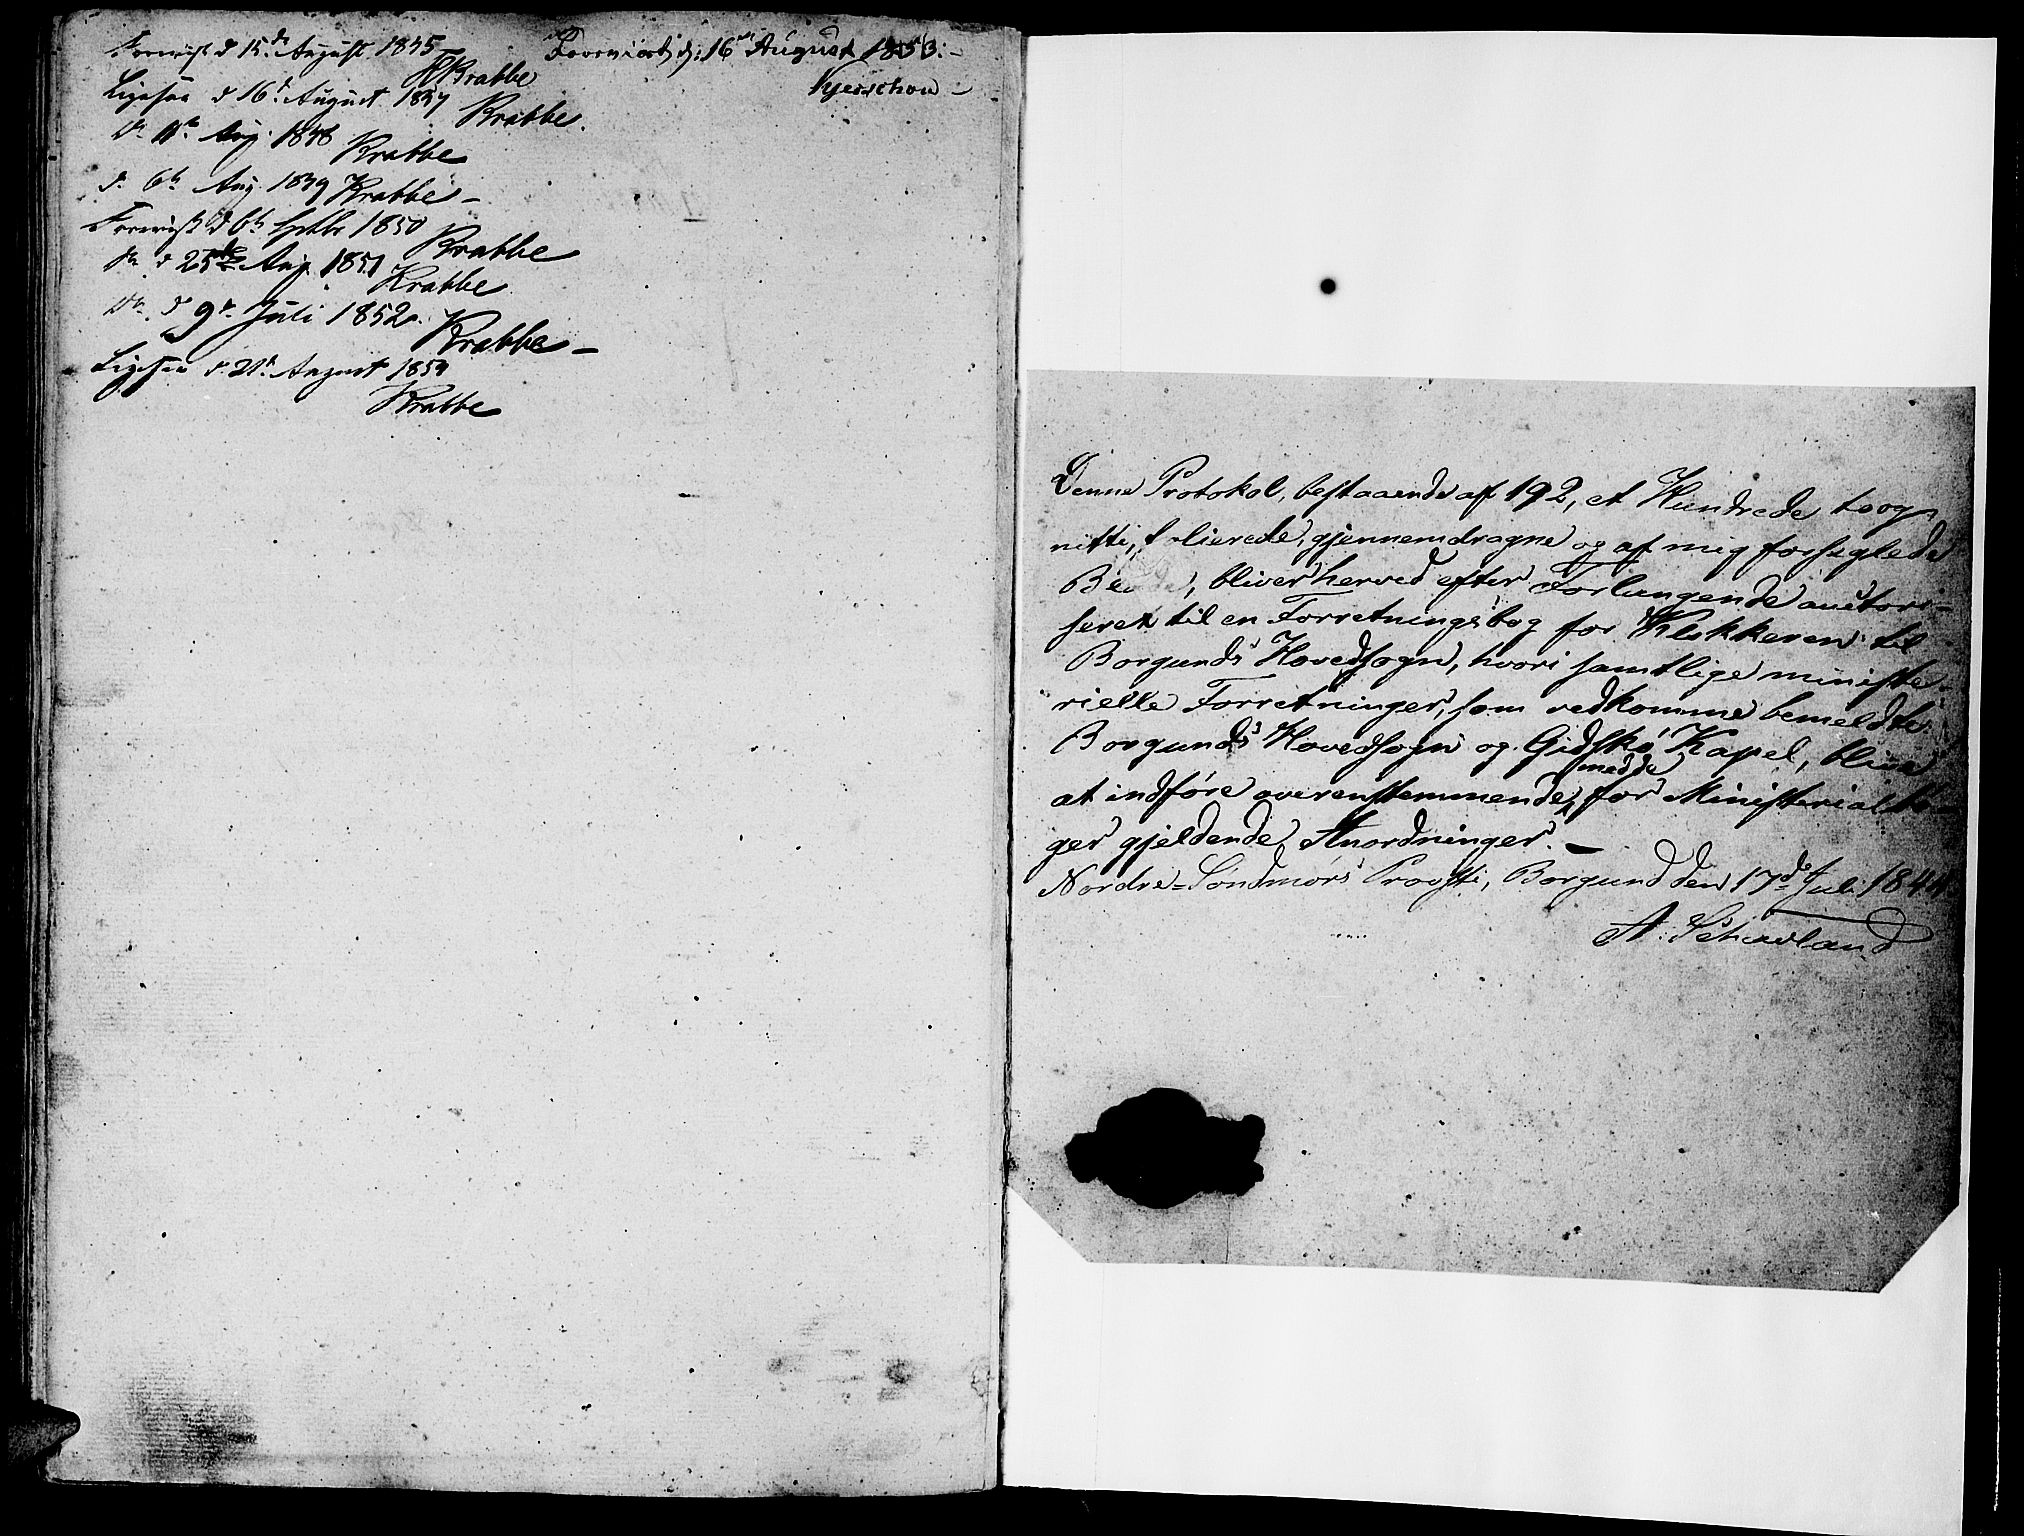 Foreviist d 15de August 1845
KKrabbe
Ligesaa d 16d August 1847
Krabbe.
Do 11te Aug. 1848
Krabbe
d. 6te Aug. 1849 Krabbe –
Foreviist d 6te Septbr 1850
Krabbe
Do d 25de Aug. 1851
Krabbe
Do. d 9de Juli 1852.
Krabbe –
Ligesaa d. 21d. August 1854
Krabbe
Foreviist d: 16de August 1853. –
Kjerschow –
Denne Protokol, bestaaende af 192, et Hundrede toog
nitti, folierede, gjennemdragne og af mig forseglede
Blade, bliver herved efter Forlangende auctori-
seret til en Forretningsbog for Klokkeren til
Borgunds Hovedsogn, hvori samtlige ministe-
rielle Forretninger, som vedkomme bemeldte
Borgunds Hovedsogn og Gidskø Kapel, blive
at indføre overensstemmende medde for Ministerialbø-
ger gjeldende Anordninger. –
Nordre-Søndmørs Provsti, Borgund den 17de Juli 1844
A: